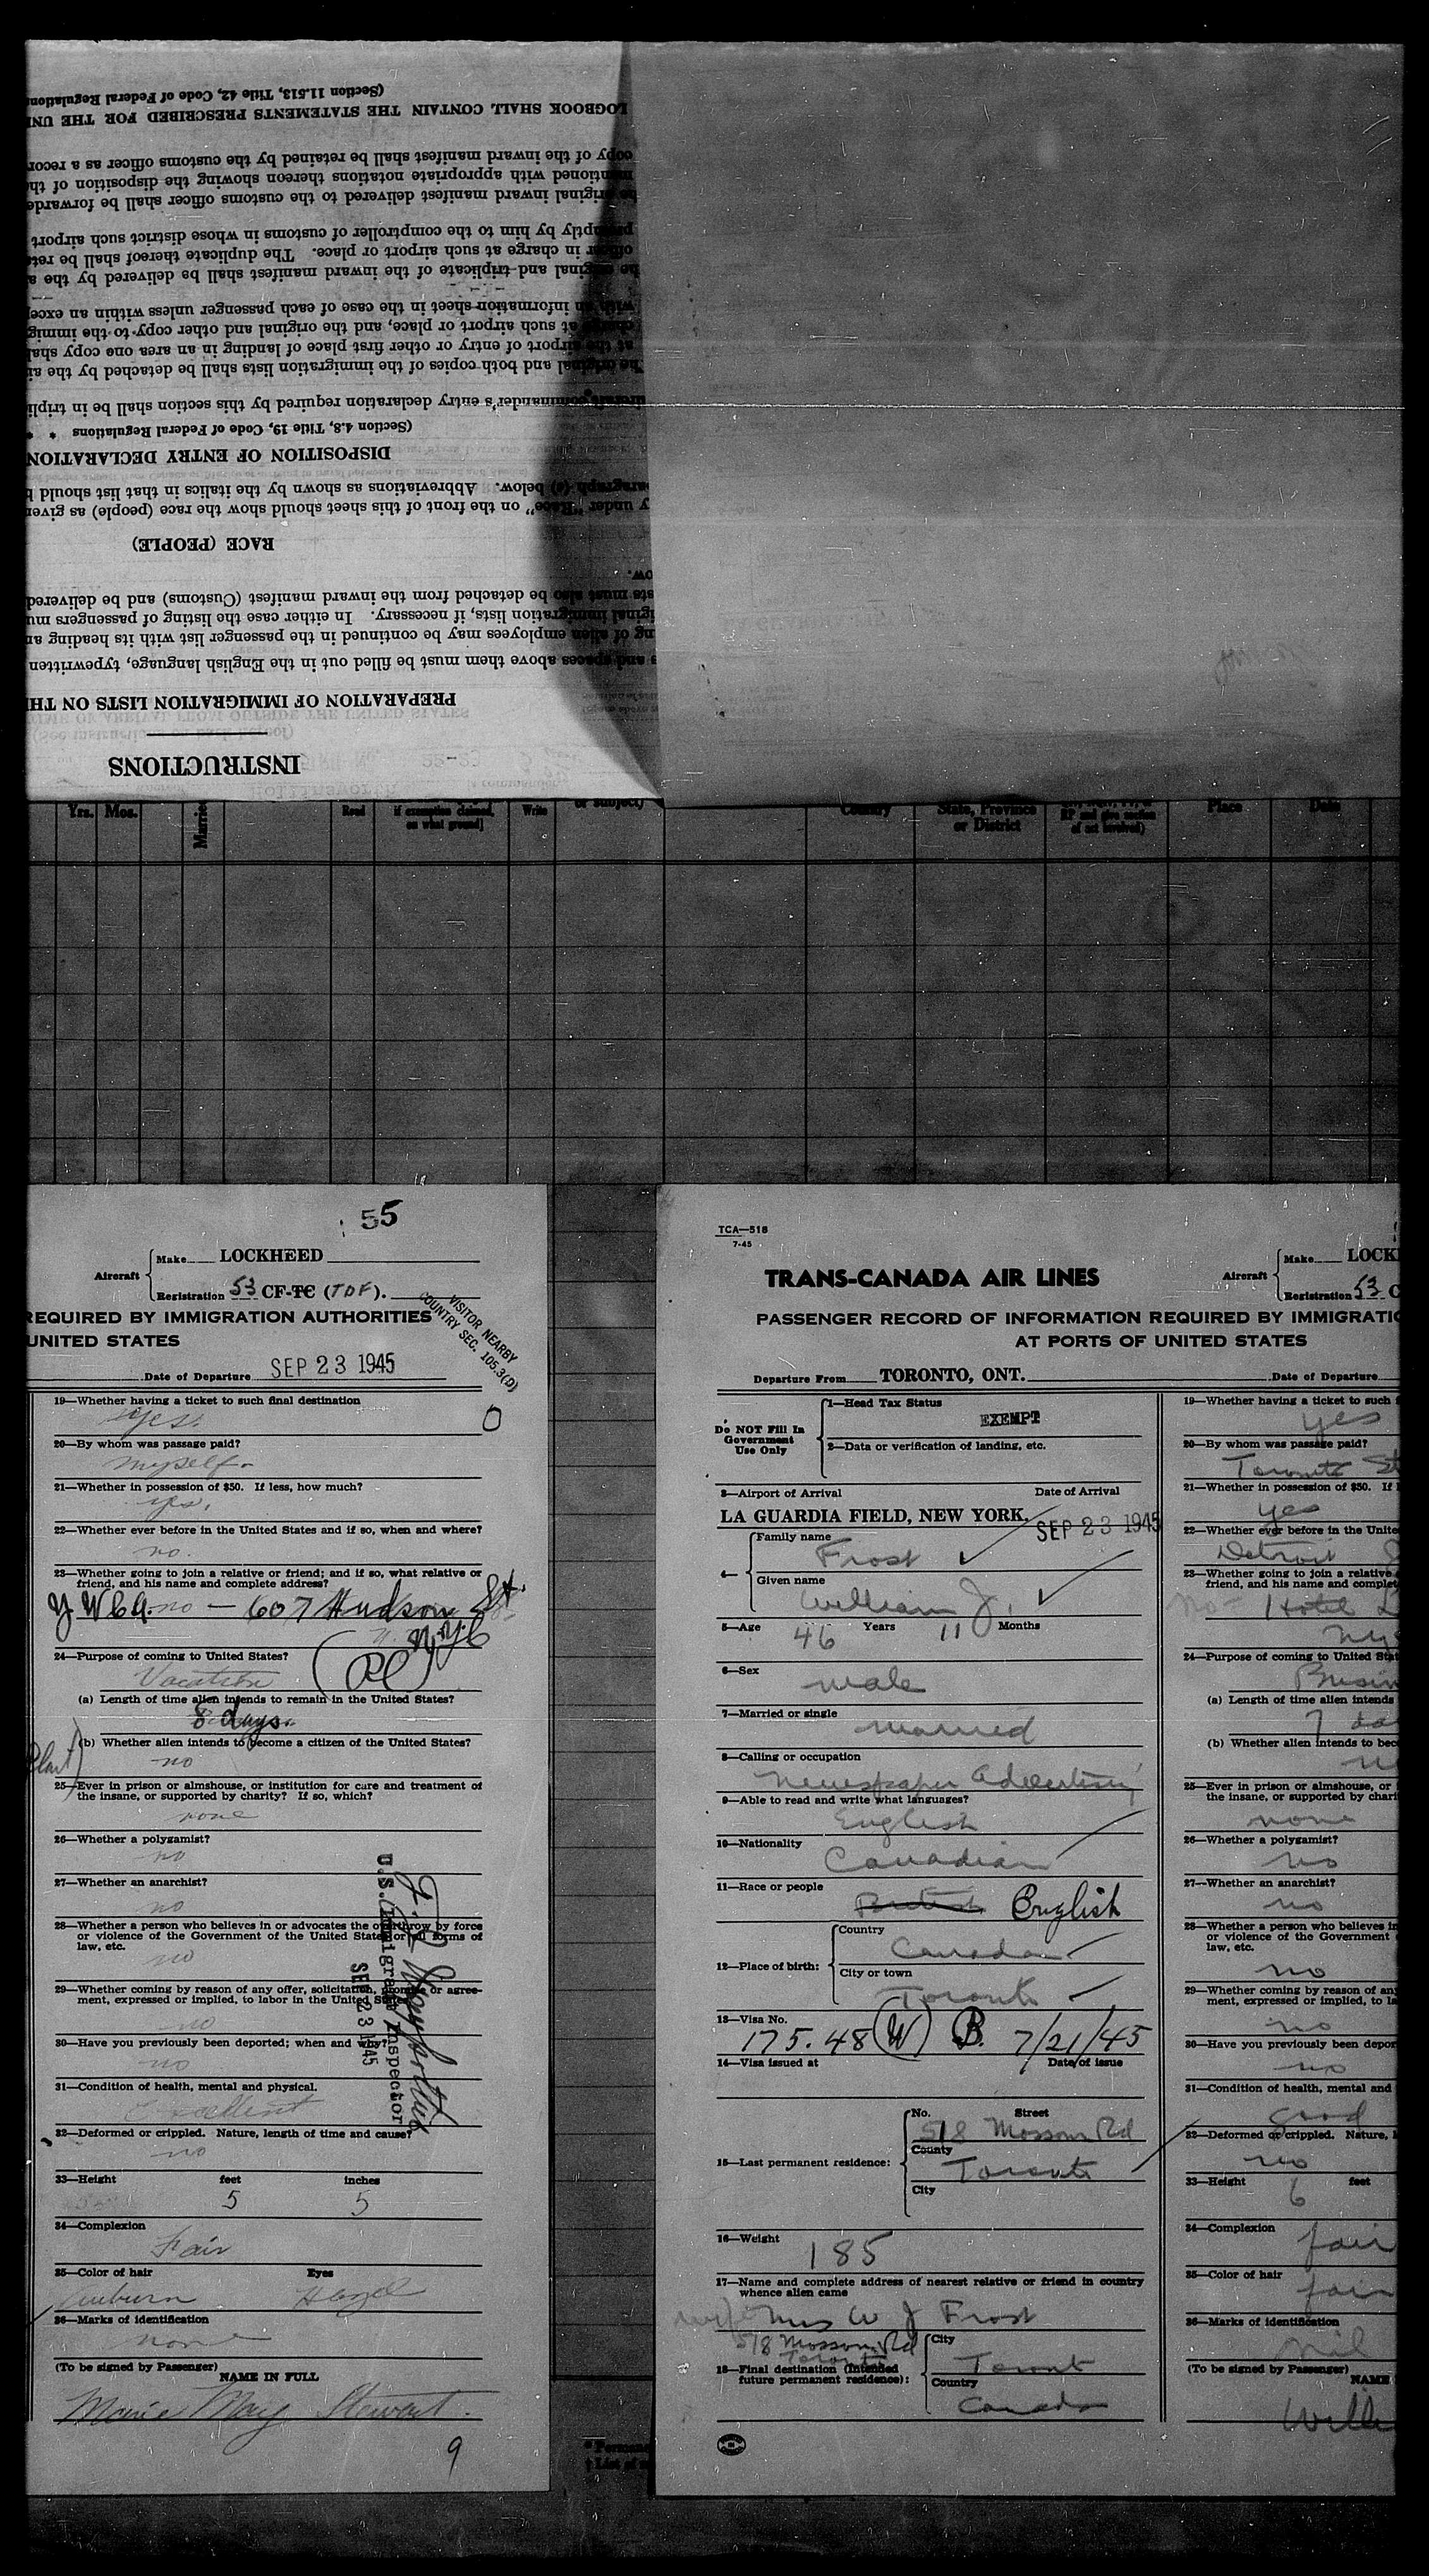 INSTRUCTIONS
PREPARATION OF IMMIGRATION LISTS ON TH
and spaces above them must be filled out in the English language, typewritten
ng of alien employees may be continued in the passenger list with its heading an
iginal immigration lists, if necessary. In either case the listing of passengers mu
sts must also be detached from the inward manifest (Customs) and be delivered
ow.
RACE (PEOPLE)
y under "Race" on the front of this sheet should show the race (people) as given
paragraph (e) below. Abbreviations as shown by the italics in that list should b
DISPOSITION OF ENTRY DECLARATION
(Section 4.8, Title 19, Code of Federal Regulations * *
aircraft commander's entry declaration required by this section shall be in tripli
he original and both copies of the immigration lists shall be detached by the ai
at the airport of entry or other first place of landing in an area one copy shal
charge at such airport or place, and the original and other copy to the immig
with an information sheet in the case of each passenger unless within an excep
he original and triplicate of the inward manifest shall be delivered by the a
officer in charge at such airport or place. The duplicate thereof shall be reta
promptly by him to the comptroller of customs in whose district such airport
he original inward manifest delivered to the customs officer shall be forwarde
mentioned with appropriate notations thereon showing the disposition of th
copy of the inward manifest shall be retained by the customs officer as a recor
LOGBOOK SHALL CONTAIN THE STATEMENTS PRESCRIBED FOR THE UNI
(Section 11.513, Title 42, Code of Federal Regulation
Yrs. Mos. Marrie Read if exemption claimed, on what ground] Write or subject) Country State, Province or District Place Date
RP and give section of act involved)
55
Aircraft
Make LOCKHEED
Registration 53 CF-TC (TDF).
VISITOR NEARBY
COUNTRY SEC. 105.3(D)
REQUIRED BY IMMIGRATION AUTHORITIES
UNITED STATES
Date of Departure SEP 23 1945
19—Whether having a ticket to such final destination
yes.
0
20—By whom was passage paid?
myself.
21—Whether in possession of $50. If less, how much?
yes.
22—Whether ever before in the United States and if so, when and where?
no.
23—Whether going to join a relative or friend; and if so, what relative or
friend, and his name and complete address?
Y.W.C.A. no — 607 Hudson St.
N.Y.C
24—Purpose of coming to United States?
Vacation
(a) Length of time alien intends to remain in the United States?
8 days.
(b) Whether alien intends to become a citizen of the United States?
no
25—Ever in prison or almshouse, or institution for cure and treatment of
the insane, or supported by charity? If so, which?
none
26—Whether a polygamist?
no
27—Whether an anarchist?
no
28—Whether a person who believes in or advocates the overthrow by force
or violence of the Government of the United States or all forms of
law, etc.
no
29—Whether coming by reason of any offer, solicitation, promise or agree-
ment, expressed or implied, to labor in the United States
no
30—Have you previously been deported; when and why?
no
31—Condition of health, mental and physical.
Excellent
32—Deformed or crippled. Nature, length of time and cause?
no
33—Height feet inches
5 5
34—Complexion
Fair
35—Color of hair Eyes
auburn Hazel
36—Marks of identification
none
(To be signed by Passenger)
NAME IN FULL
Marie May Stewart.
9
U.S. Immigrant Inspector
SEP 23 1945
TCA—518
7-45
TRANS-CANADA AIR LINES
Aircraft
Make LOCK
Registration 53 C
PASSENGER RECORD OF INFORMATION REQUIRED BY IMMIGRATIO
AT PORTS OF UNITED STATES
Departure From TORONTO, ONT. Date of Departure
Do NOT Fill In
Government
Use Only
1—Head Tax Status
EXEMPT
2—Data or verification of landing, etc.
3—Airport of Arrival Date of Arrival
LA GUARDIA FIELD, NEW YORK. SEP 23 1945
4—
Family name
Frost
Given name
William J.
5—Age 46 Years 11 Months
6—Sex
male
7—Married or single
married
8—Calling or occupation
Newspaper Advertising
9—Able to read and write what languages?
English
10—Nationality
Canadian
11—Race or people
British English
12—Place of birth:
Country
Canada
City or town
Toronto
13—Visa No.
175.48 (W) B. 7/21/45
14—Visa issued at Date of issue
15—Last permanent residence:
No. Street
518 Mossom Rd
County
Toronto
City
16—Weight
185
17—Name and complete address of nearest relative or friend in country
whence alien came
wife Mrs W J Frost
518 Mossom Rd
Toronto
18—Final destination (Intended
future permanent residence):
City
Toronto
Country
Canada
19—Whether having a ticket to such f
yes
20—By whom was passage paid?
Toronto St
21—Whether in possession of $50. If l
yes
22—Whether ever before in the Unite
Detroit
23—Whether going to join a relative
friend, and his name and complet
no - Hotel
24—Purpose of coming to United Stat
Busin
(a) Length of time alien intends
7 da
(b) Whether alien intends to bec
25—Ever in prison or almshouse, or
the insane, or supported by charit
none
26—Whether a polygamist?
no
27—Whether an anarchist?
no
28—Whether a person who believes in
or violence of the Government
law, etc.
no
29—Whether coming by reason of any
ment, expressed or implied, to la
no
30—Have you previously been depor
no
31—Condition of health, mental and
good
32—Deformed or crippled. Nature, l
no
33—Height 6 feet
34—Complexion
fair
35—Color of hair
fair
36—Marks of identification
nil
(To be signed by Passenger)
NAME
Willi